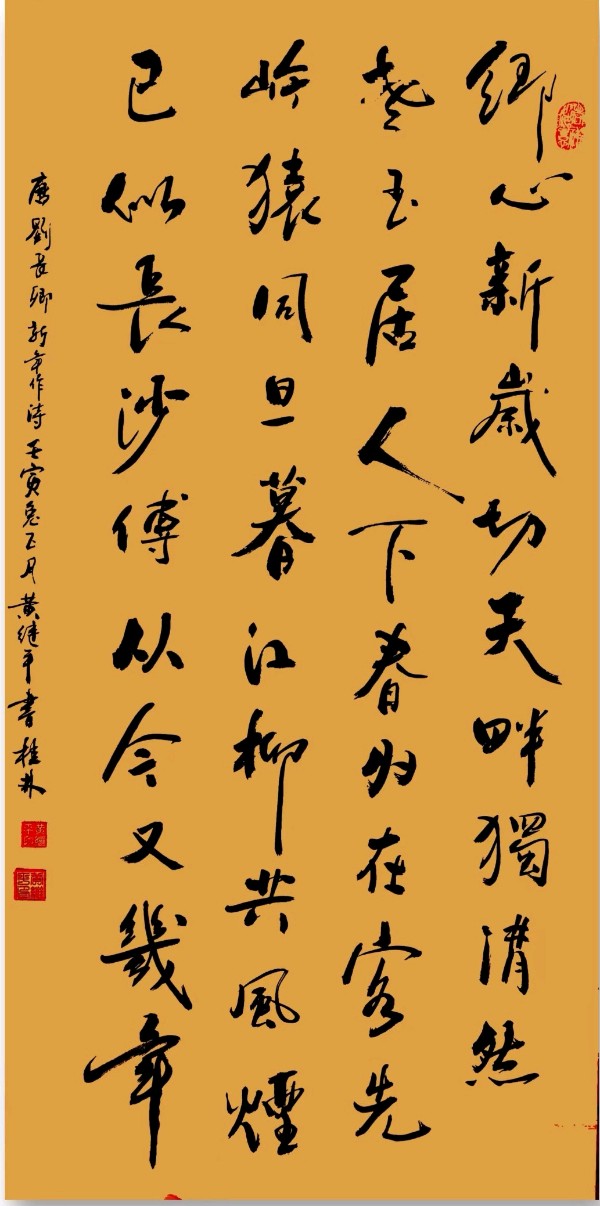 鄉心新歲切天畔獨潸然
老至居人下春归在客先
岭猿同旦暮江柳共風煙
已似長沙傅从今又幾年
唐劉長卿新年作诗壬寅正月黄继平書桂林